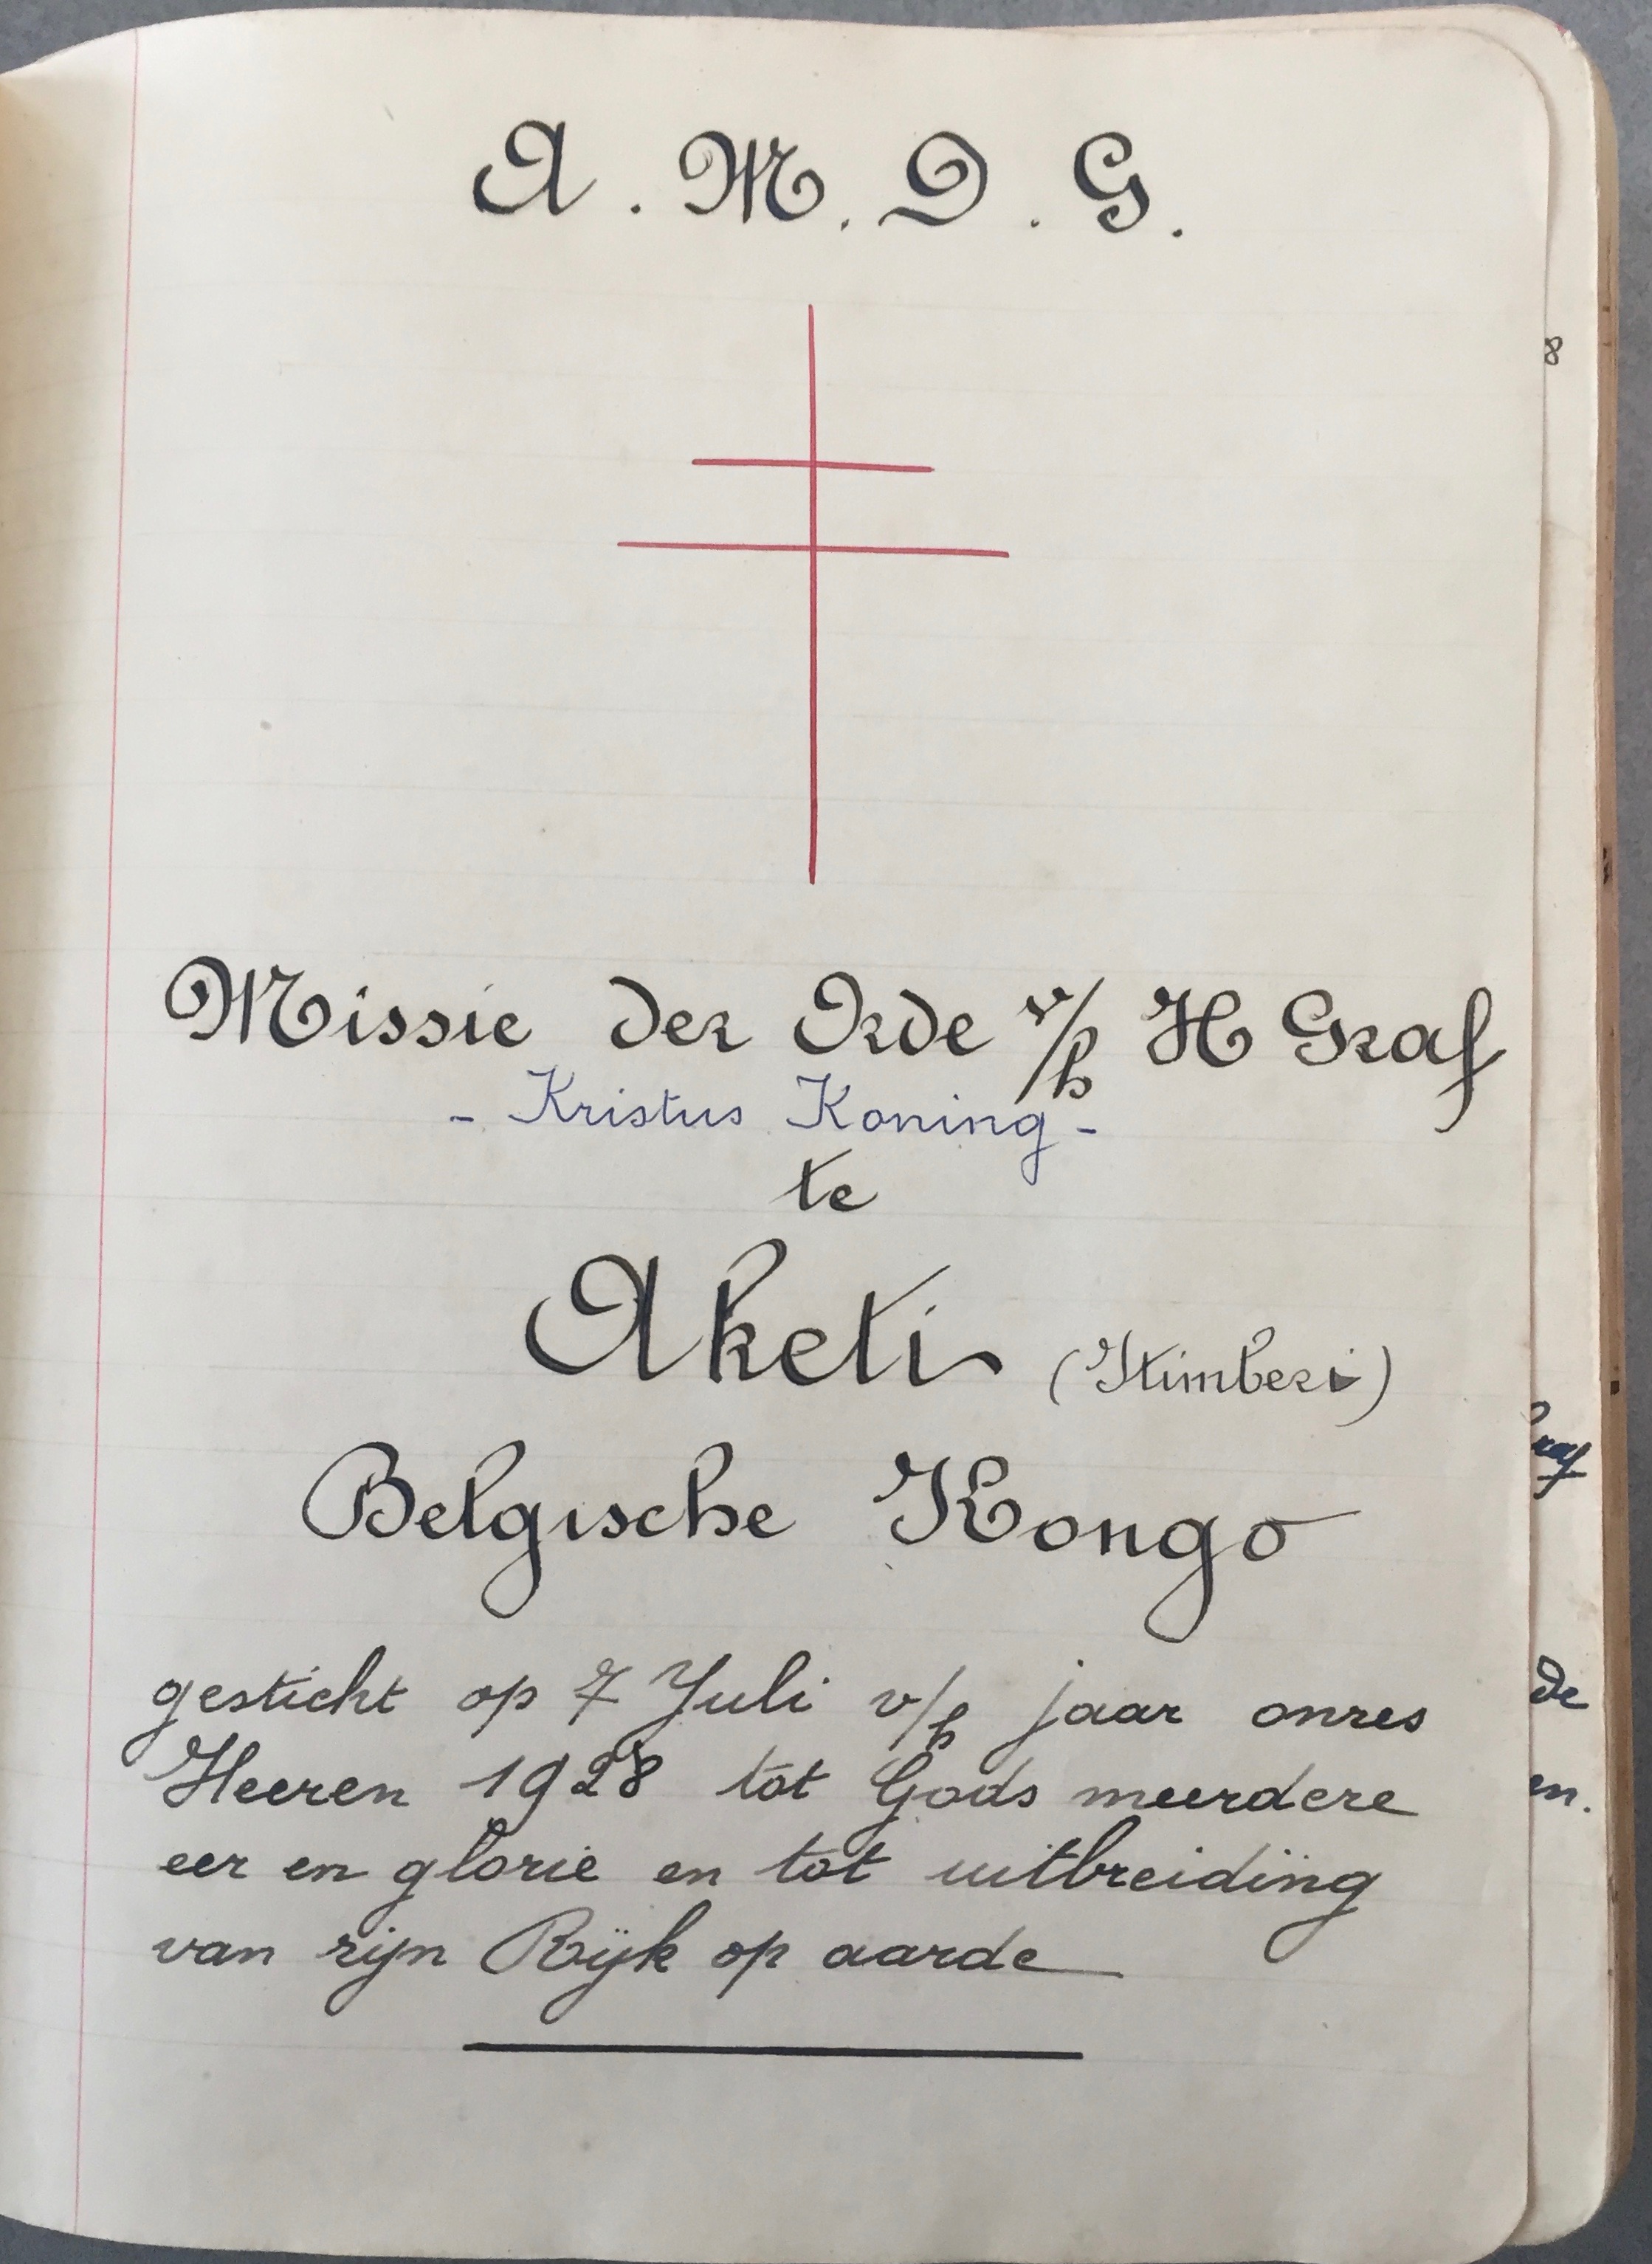 A. M. D. G.
Missie der Orde v/h H Graf
- Kristus Koning -
te
Aketi (Itimberi)
Belgische Kongo
gesticht op 7 Juli v/h jaar onzes
Heeren 1928 tot Gods meerdere
eer en glorie en tot uitbreiding
van zijn Rijk op aarde
8
de
en.